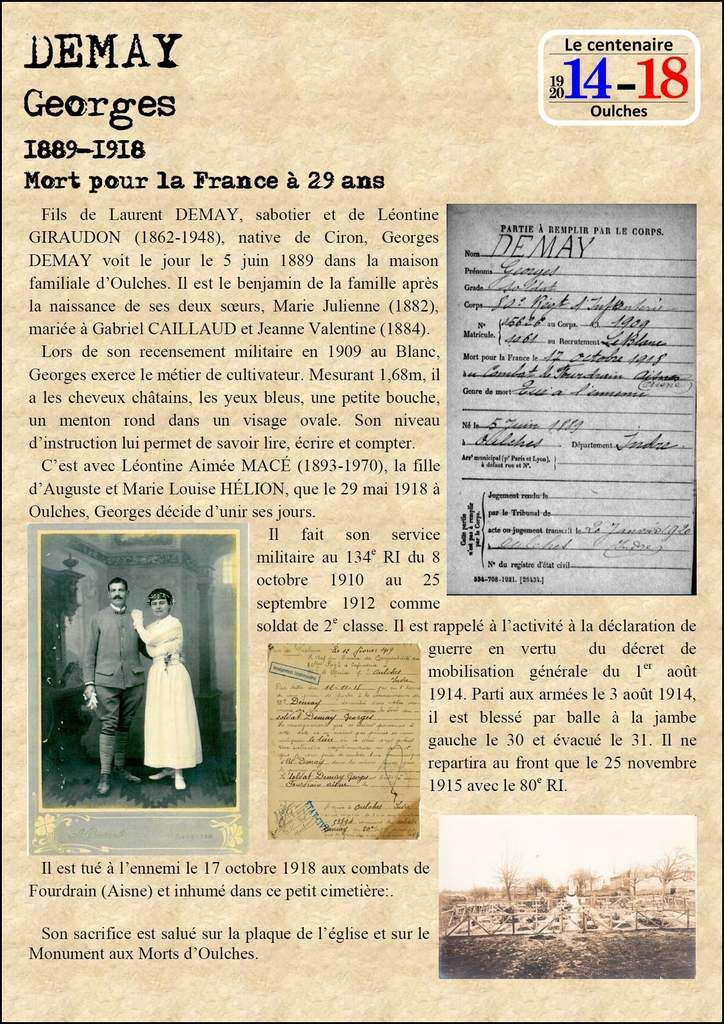 DEMAY
Georges
1889-1918
Mort pour la France à 29 ans
Le centenaire
1920
14-18
Oulches
Fils de Laurent DEMAY, sabotier et de Léontine
GIRAUDON (1862-1948), native de Ciron, Georges
DEMAY voit le jour le 5 juin 1889 dans la maison
familiale d'Oulches. Il est le benjamin de la famille après
la naissance de ses deux sœurs, Marie Julienne (1882),
mariée à Gabriel CAILLAUD et Jeanne Valentine (1884).
Lors de son recensement militaire en 1909 au Blanc,
Georges exerce le métier de cultivateur. Mesurant 1,68m, il
a les cheveux châtains, les yeux bleus, une petite bouche,
un menton rond dans un visage ovale. Son niveau
d'instruction lui permet de savoir lire, écrire et compter.
C'est avec Léontine Aimée MACÉ (1893-1970), la fille
d'Auguste et Marie Louise HÉLION, que le 29 mai 1918 à
Oulches, Georges décide d'unir ses jours.
PARTIE À REMPLIR PAR LE CORPS.
Nom DEMAY
Prénoms Georges
Grade Soldat
Corps Regt d'Infanterie
N° au Corps. 1909
Matricule. au Recrutement Le Blanc
Mort pour la France le 17 octobre 1918
Combat de Fourdrain Aisne
Genre de mort Tué à l'ennemi
Né le 5 Juin 1889
à Oulches Département Indre
Arrt municipal (pr Paris et Lyon),
à défaut rue et N°.
Cette partie n'est pas à remplir par le Corps.
Jugement rendu le
par le Tribunal de
acte ou jugement transcrit le 20 Janvier 1920
à Oulches (Indre)
N° du registre d'état civil
534-708-1921. [26434.]
Il fait son service
militaire au 134e RI du 8
octobre 1910 au 25
septembre 1912 comme
soldat de 2e classe. Il est rappelé à l'activité à la déclaration de
guerre en vertu du décret de
mobilisation générale du 1er août
1914. Parti aux armées le 3 août 1914,
il est blessé par balle à la jambe
gauche le 30 et évacué le 31. Il ne
repartira au front que le 25 novembre
1915 avec le 80e RI.
février 1919
Oulches
Indre
Demay
soldat Demay Georges
Demay
Soldat Demay Georges
Oulches Indre
Il est tué à l'ennemi le 17 octobre 1918 aux combats de
Fourdrain (Aisne) et inhumé dans ce petit cimetière:.
Son sacrifice est salué sur la plaque de l'église et sur le
Monument aux Morts d'Oulches.